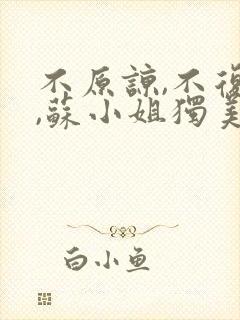 不原諒,不復
,蘇小姐獨美
白小鱼